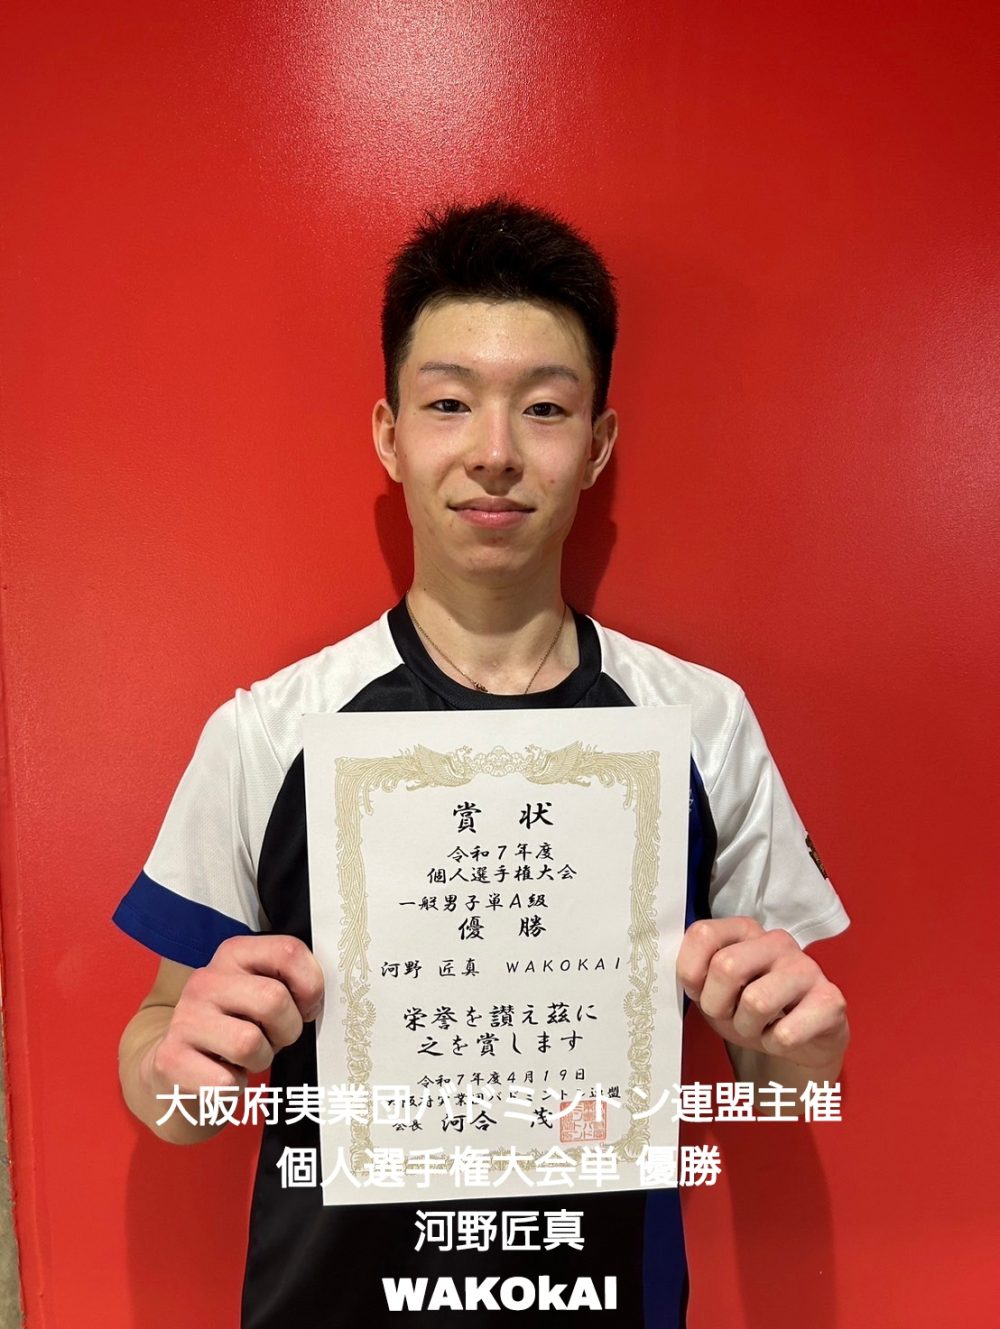 賞 状
令和7年度
個人選手権大会
一般男子単A級
優 勝
河野 匠真 WAKOKAI
栄誉を讃え茲に
之を賞します
令和7年度4月19日
会長 河合 茂
大阪府実業団バドミントン連盟主催
個人選手権大会単 優勝
河野匠真
WAKOkAI